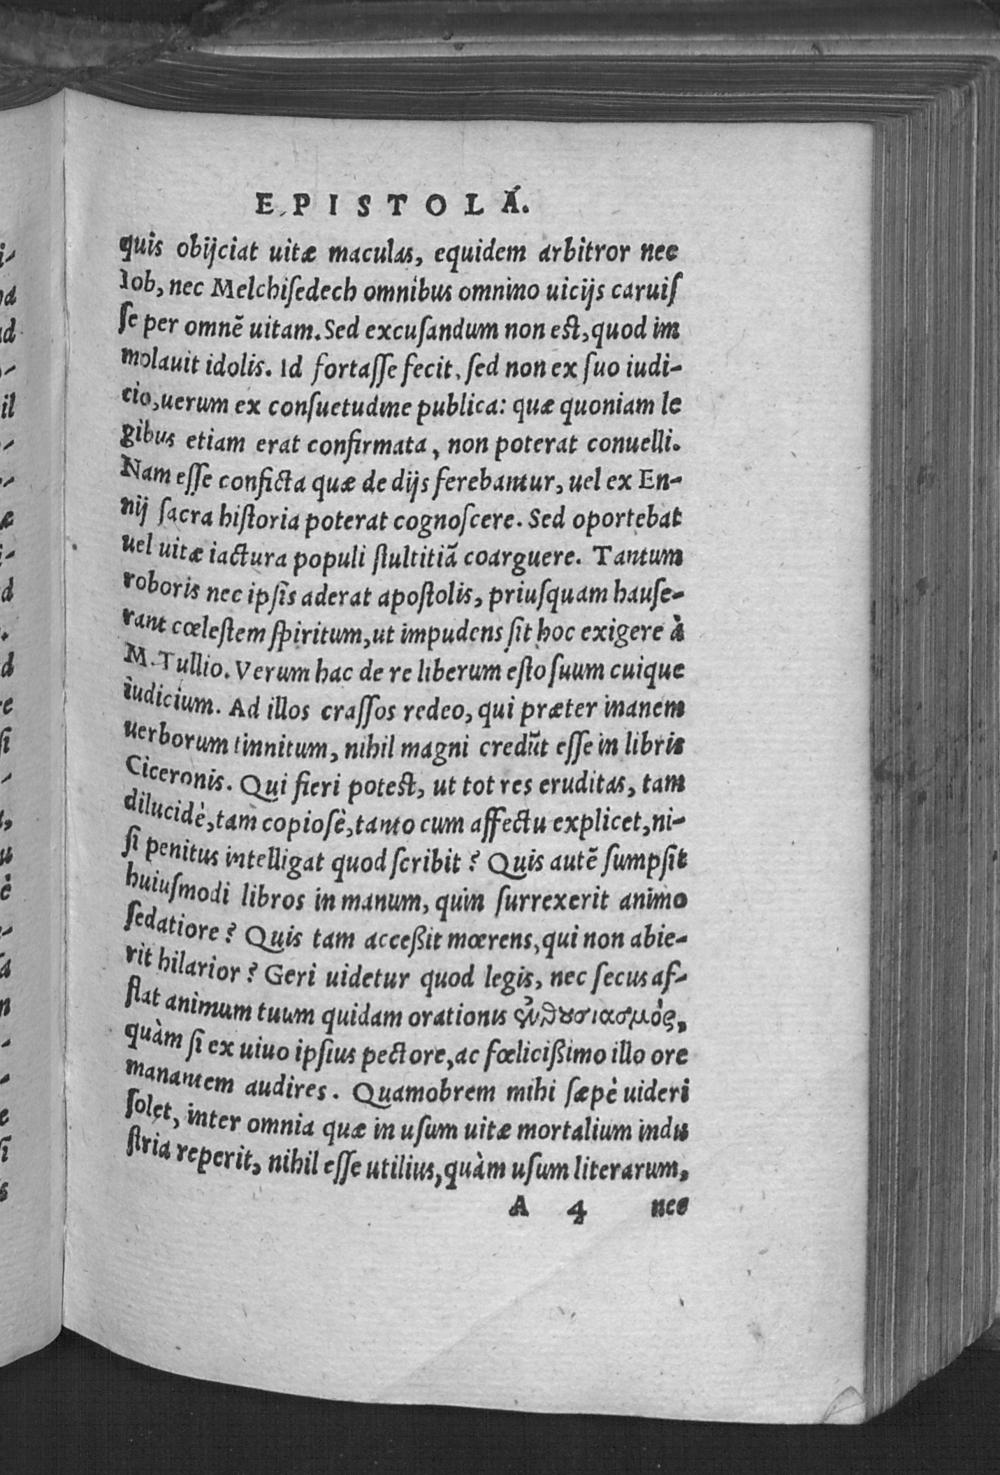 EPISTOLA.
quis obijciat uitæ maculas, equidem arbitror nec
Iob, nec Melchisedech omnibus omnino uicijs caruis
se per omnē uitam. Sed excusandum non est, quod im
molauit idolis. Id fortasse fecit, sed non ex suo iudi-
cio, uerum ex consuetudine publica: quæ quoniam le
gibus etiam erat confirmata, non poterat conuelli.
Nam esse conficta quæ de dijs ferebantur, uel ex En-
nij sacra historia poterat cognoscere. Sed oportebat
uel uitæ iactura populi stultitiā coarguere. Tantum
roboris nec ipsis aderat apostolis, priusquam hause-
rant cœlestem spiritum, ut impudens sit hoc exigere à
M. Tullio. Verum hac de re liberum esto suum cuique
iudicium. Ad illos crassos redeo, qui præter inanem
uerborum tinnitum, nihil magni credūt esse in libris
Ciceronis. Qui fieri potest, ut tot res eruditas, tam
dilucidè, tam copiosè, tanto cum affectu explicet, ni-
si penitus intelligat quod scribit? Quis autē sumpsit
huiusmodi libros in manum, quin surrexerit animo
sedatiore? Quis tam acceßit mœrens, qui non abie-
rit hilarior? Geri uidetur quod legis, nec secus af-
flat animum tuum quidam orationis ἐνθουσιασμὸς,
quàm si ex uiuo ipsius pectore, ac fœlicißimo illo ore
manantem audires. Quamobrem mihi sæpè uideri
solet, inter omnia quæ in usum uitæ mortalium indu
stria reperit, nihil esse utilius, quàm usum literarum,
A 4 nec